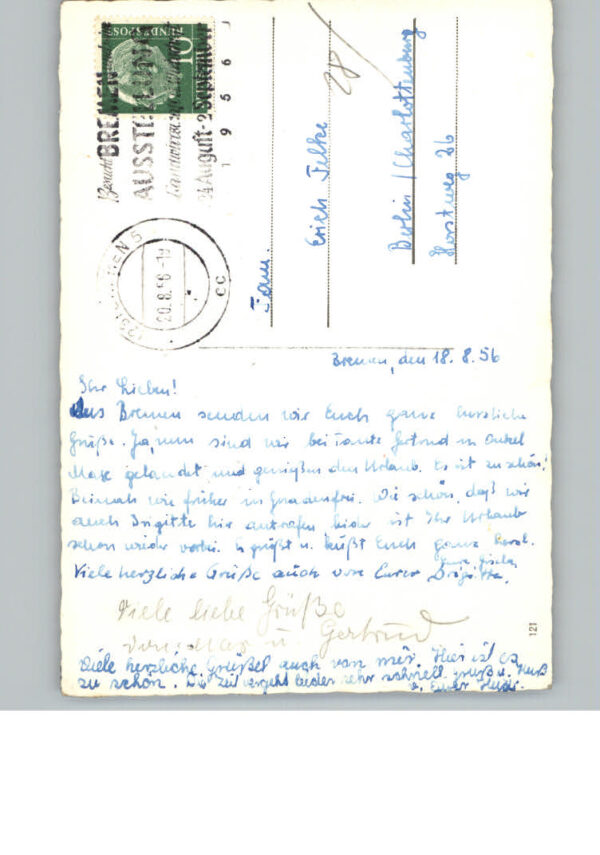 10
BUNDESPOST
Besucht
BREMEN
AUSSTELLUNG
24 August - 2 September
1956
BREMEN 5
20.8.56-19
cc
28/
Fam.
Erich Felke
Berlin / Charlottenburg
Horstweg 26
Bremen, den 18.8.56
Ihr Lieben!
Aus Bremen senden wir Euch ganz herzliche
Grüße. Ja, nun sind wir bei Tante Gertrud u. Onkel
Max gelandet und genießen den Urlaub. Es ist zu schön!
Beinah wie früher in Gnadenfrei. Wie schön, daß wir
auch Brigitte hier antrafen leider ist Ihr Urlaub
schon wieder vorbei. Es grüßt u. küßt Euch ganz herzl.
Eure Gisela
Viele herzliche Grüße auch von Eurer Brigitte.
Viele liebe Grüße
von Max u. Gertrud
Viele herzliche Grüße auch von mir. Hier ist es
zu schön. Die Zeit vergeht leider sehr schnell. Gruß u. Kuß
v. Eurer
121